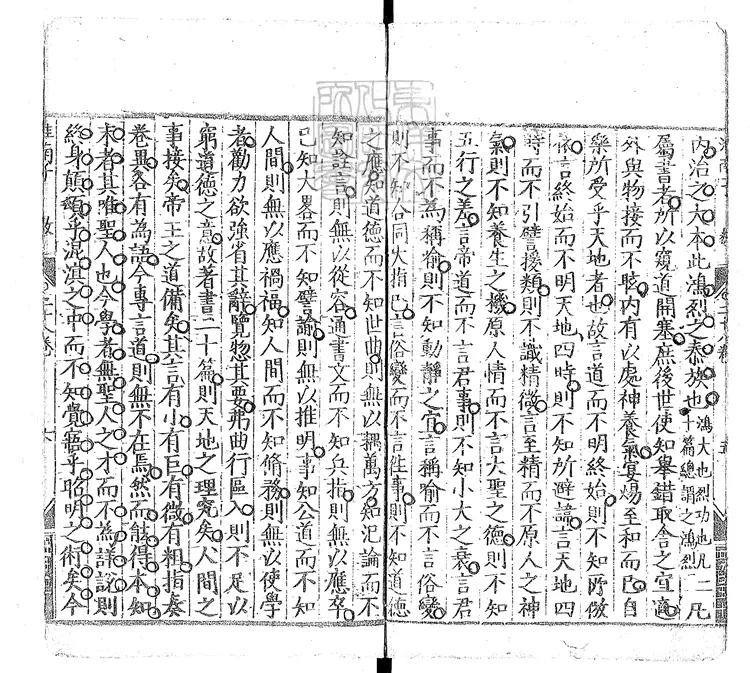 內治之大本此鴻烈之泰族也鴻大也烈功也凡二十篇總謂之鴻烈凡
屬書者所以窺道開塞庶後世使知舉錯取舍之宜適
外與物接而不眩內有以處神養氣宴煬至和而已自
樂所受乎天地者也故言道而不明終始則不知所倣
依言終始而不明天地四時則不知所避諱言天地四
時而不引譬援類則不識精微言至精而不原人之神
氣則不知養生之機原人情而不言大聖之德則不知
五行之差言帝道而不言君事則不知小大之衰言君
事而不為稱喻則不知動靜之宜言稱喻而不言俗變
則不知合同大指已言俗變而不言往事則不知道德
之應知道德而不知世曲則無以耦萬方知氾論而不
知詮言則無以從容通書文而不知兵指則無以應卒
已知大畧而不知譬諭則無以推明事知公道而不知
人間則無以應禍福知人間而不知脩務則無以使學
者勸力欲強省其辭覽惣其要弗曲行區入則不足以
窮道德之意故著書二十篇則天地之理究矣人間之
事接矣帝王之道備矣其言有小有巨有微有粗指奏
卷異各有為語今專言道則無不在焉然而能得本知
末者其唯聖人也今學者無聖人之才而不為詳說則
終身顛頓乎混溟之中而不知覺寤乎昭明之術矣今